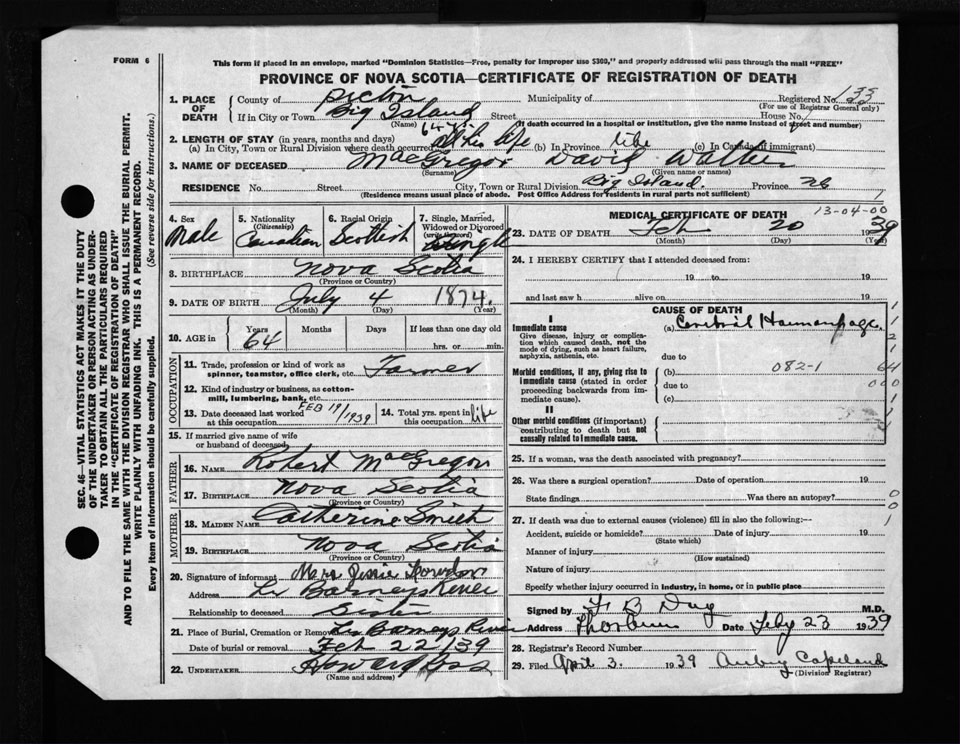 FORM 6
This form if placed in an envelope, marked "Dominion Statistics—Free, penalty for improper use $300," and properly addressed will pass through the mail "FREE"
PROVINCE OF NOVA SCOTIA—CERTIFICATE OF REGISTRATION OF DEATH
SEC. 46—VITAL STATISTICS ACT MAKES IT THE DUTY
OF THE UNDERTAKER OR PERSON ACTING AS UNDER-
TAKER TO OBTAIN ALL THE PARTICULARS REQUIRED
IN THE "CERTIFICATE OF REGISTRATION OF DEATH"
AND TO FILE THE SAME WITH THE DIVISION REGISTRAR WHO SHALL ISSUE THE BURIAL PERMIT.
WRITE PLAINLY WITH UNFADING INK. THIS IS A PERMANENT RECORD.
Every item of information should be carefully supplied. (See reverse side for instructions.)
1. PLACE OF DEATH County of Pictou Municipality of Registered No.
(For use of Registrar General only)
If in City or Town Big Island Street House No.
(Name) (If death occurred in a hospital or institution, give the name instead of street and number)
2. LENGTH OF STAY (in years, months and days) 64
(a) In City, Town or Rural Division where death occurred all his life (b) In Province life (c) In Canada (if immigrant)
3. NAME OF DECEASED MacGregor David
(Surname) (Given name or names)
RESIDENCE No. Street City, Town or Rural Division Big Island. Province NS
(Residence means usual place of abode. Post Office Address for residents in rural parts not sufficient) 1
4. Sex Male
5. Nationality (Citizenship) Canadian
6. Racial Origin Scottish
7. Single, Married, Widowed or Divorced (write the word) Single
8. BIRTHPLACE Nova Scotia
(Province or Country)
9. DATE OF BIRTH July 4 1874
(Month) (Day) (Year)
10. AGE in Years 64 Months Days If less than one day old hrs. or min.
OCCUPATION
11. Trade, profession or kind of work as spinner, teamster, office clerk, etc. Farmer
12. Kind of industry or business, as cotton-mill, lumbering, bank, etc.
13. Date deceased last worked at this occupation FEB 19/1939
14. Total yrs. spent in this occupation life
15. If married give name of wife or husband of deceased
FATHER
16. NAME Robert MacGregor
17. BIRTHPLACE Nova Scotia
(Province or Country)
MOTHER
18. MAIDEN NAME Catherine Smith
19. BIRTHPLACE Nova Scotia
(Province or Country)
20. Signature of informant Mrs Jessie
Address Lr Barneys River
Relationship to deceased Sister
21. Place of Burial, Cremation or Removal Lr Barneys River
Date of burial or removal Feb 22/39
22. UNDERTAKER Howard
(Name and address)
MEDICAL CERTIFICATE OF DEATH 13-04-00
23. DATE OF DEATH Feb 20 1939
(Month) (Day) (Year)
24. I HEREBY CERTIFY that I attended deceased from:
19 to 19
and last saw h alive on 19
CAUSE OF DEATH
I
Immediate cause (a) Cerebral Haemorrhage
Give disease, injury or complication which caused death, not the mode of dying, such as heart failure, asphyxia, asthenia, etc.
due to
Morbid conditions, if any, giving rise to immediate cause (stated in order proceeding backwards from immediate cause). (b) 082-1
due to
(c)
II
Other morbid conditions (if important) contributing to death but not causally related to immediate cause.
1
1
2
1
64
000
25. If a woman, was the death associated with pregnancy?
26. Was there a surgical operation? Date of operation 19
State findings Was there an autopsy? 0
27. If death was due to external causes (violence) fill in also the following:—
Accident, suicide or homicide? Date of injury 19
(State which)
Manner of injury
(How sustained)
Nature of injury
Specify whether injury occurred in industry, in home, or in public place
Signed by B Day M.D.
Address Thorburn Date Feby 23 1939
28. Registrar's Record Number
29. Filed April 3. 1939 Aubrey Copeland
(Division Registrar)